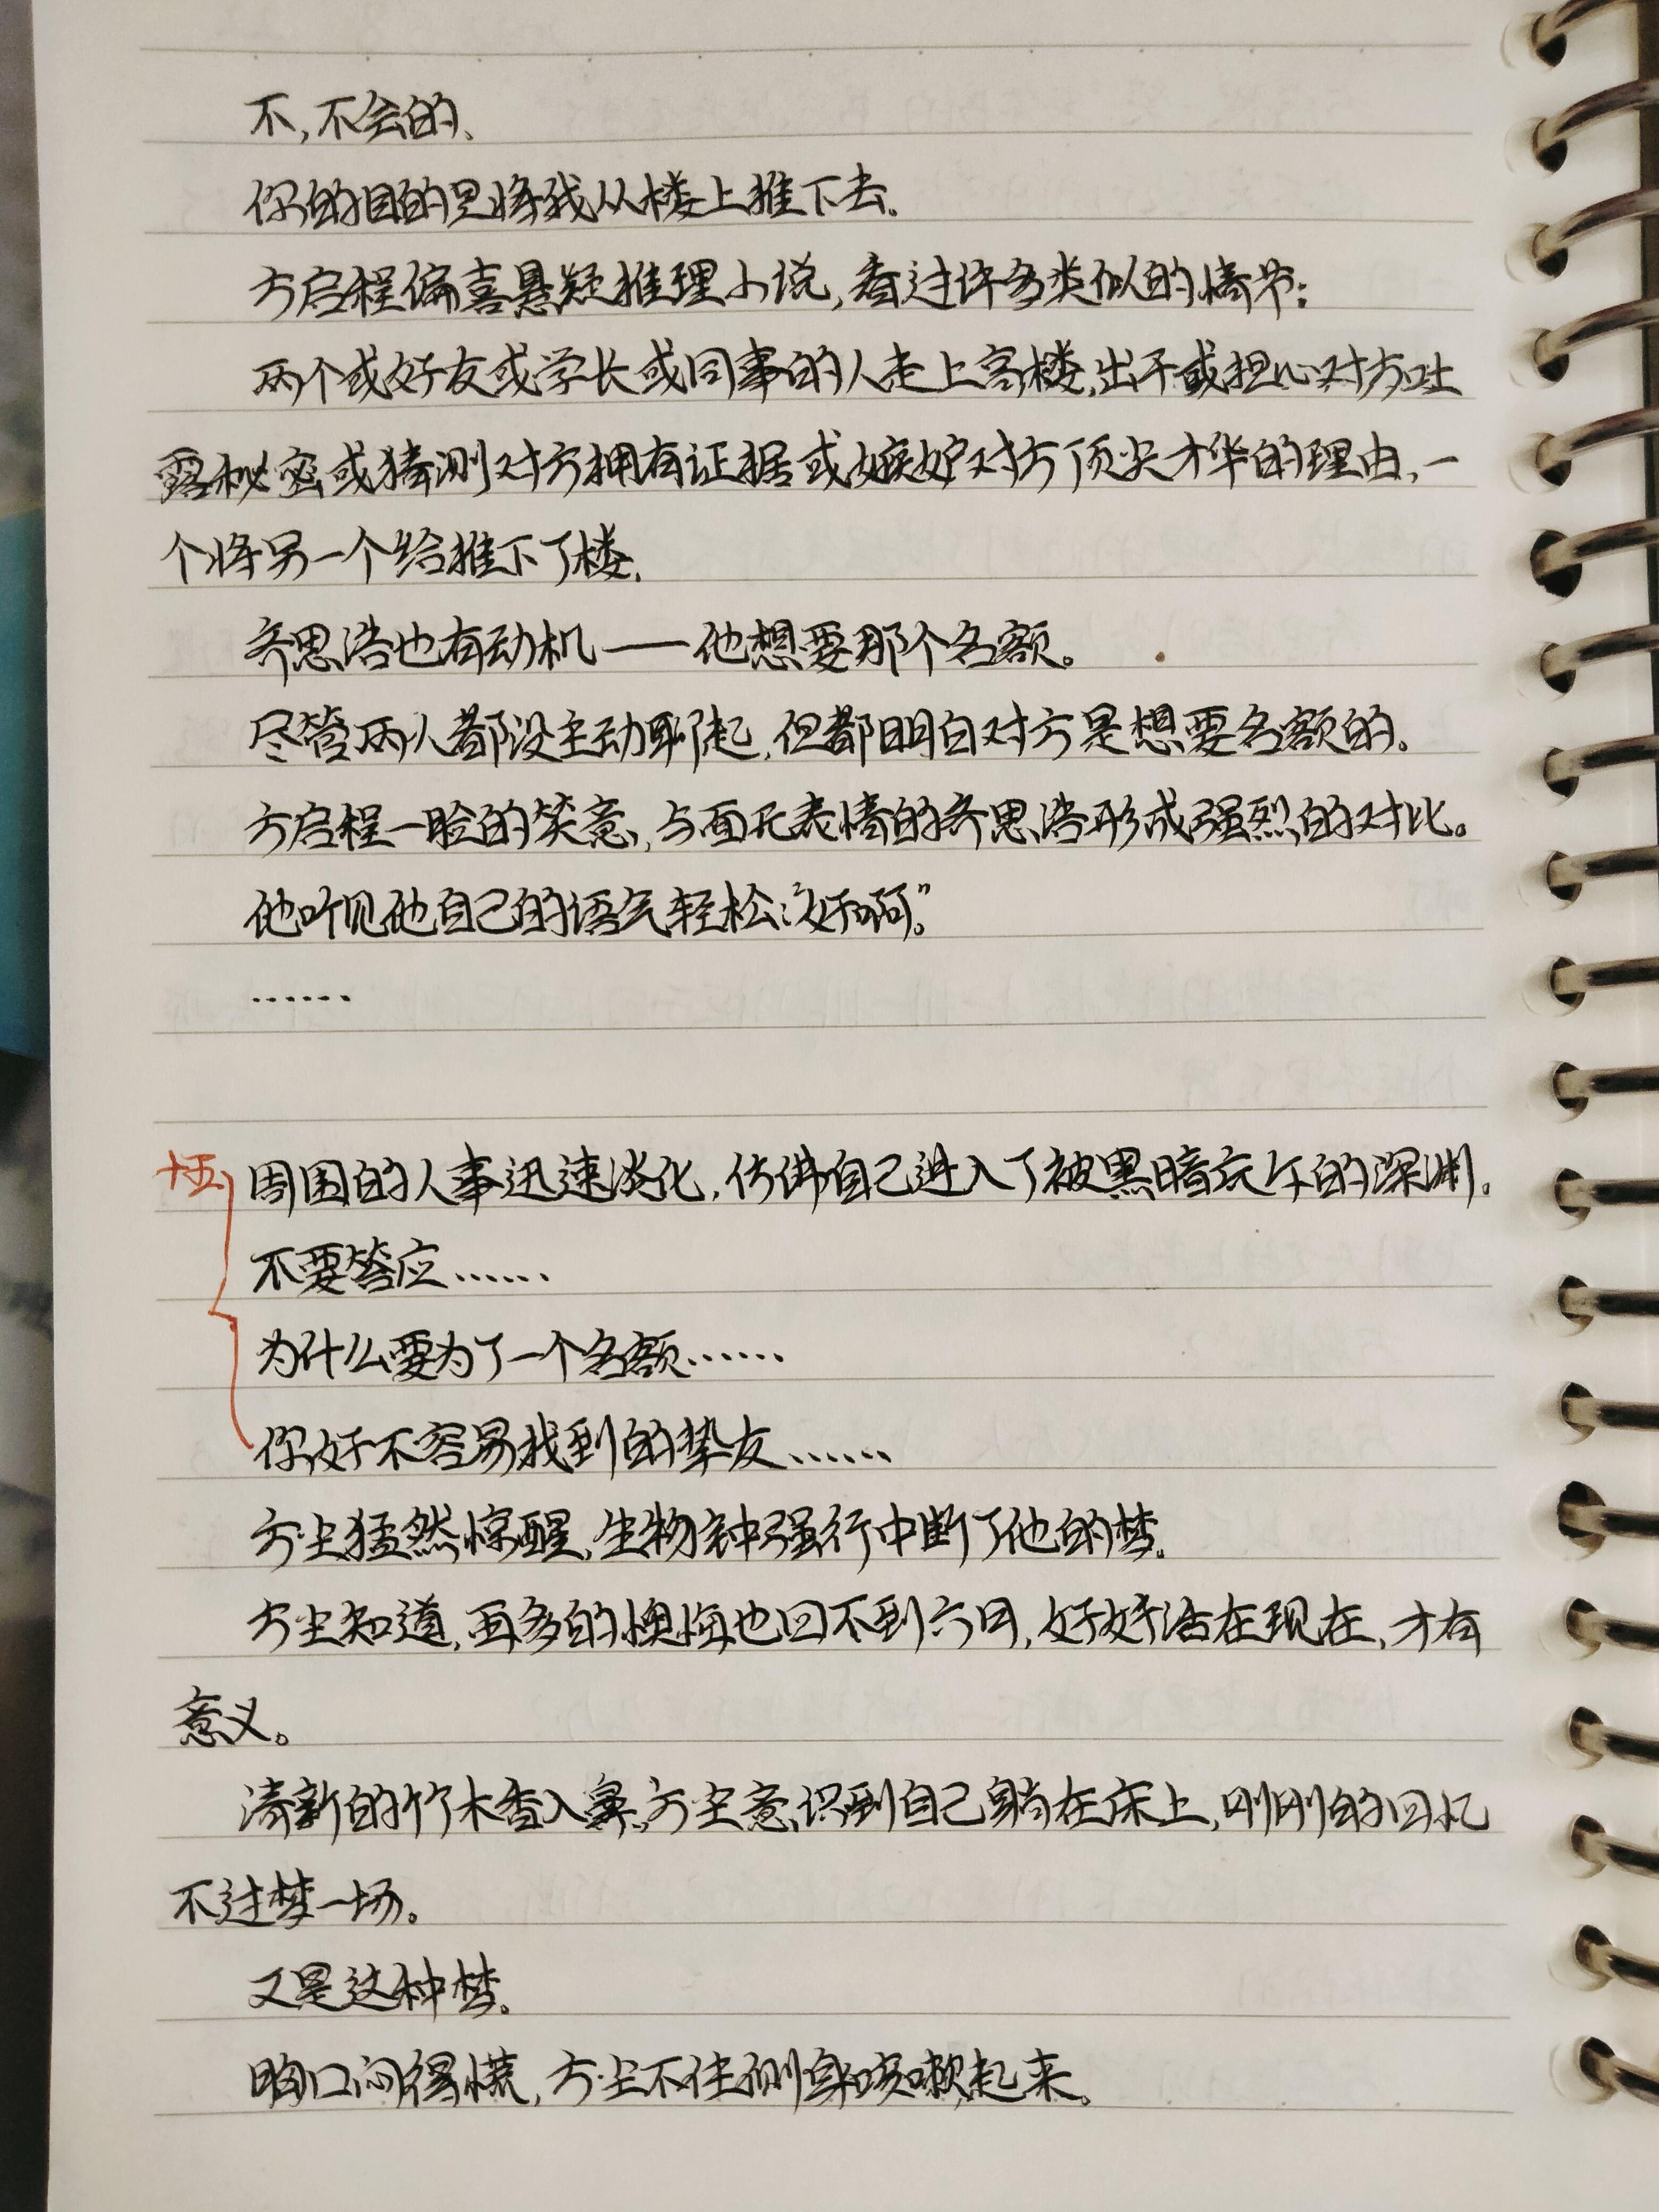 不,不会的、
你的目的是将我从楼上推下去.
方启程偏喜悬疑推理小说,看过许多类似的情节:
两个或好友或学长或同事的人走上高楼,出于或担心对方吐
露秘密或猜测对方拥有证据或嫉妒对方顶尖才华的理由,一
个将另一个给推下了楼.
齐思浩也有动机——他想要那个名额。
尽管两人都没主动聊起,但都明白对方是想要名额的。
方启程一脸的笑意,与面无表情的齐思浩形成强烈的对比。
他听见他自己的语气轻松:“好啊。”
……
十五 周围的人事迅速淡化,仿佛自己进入了被黑暗的深渊。
不要答应……
为什么要为了一个名额……
你好不容易找到的挚友……
方尘猛然惊醒,生物钟强行中断了他的梦.
方尘知道,再多的懊悔也回不到六月,好好活在现在,才有
意义。
清新的竹木香入鼻,方尘意识到自己躺在床上,刚刚的回忆
不过梦一场。
又是这种梦.
胸口闷得慌,方尘不住侧身咳嗽起来.